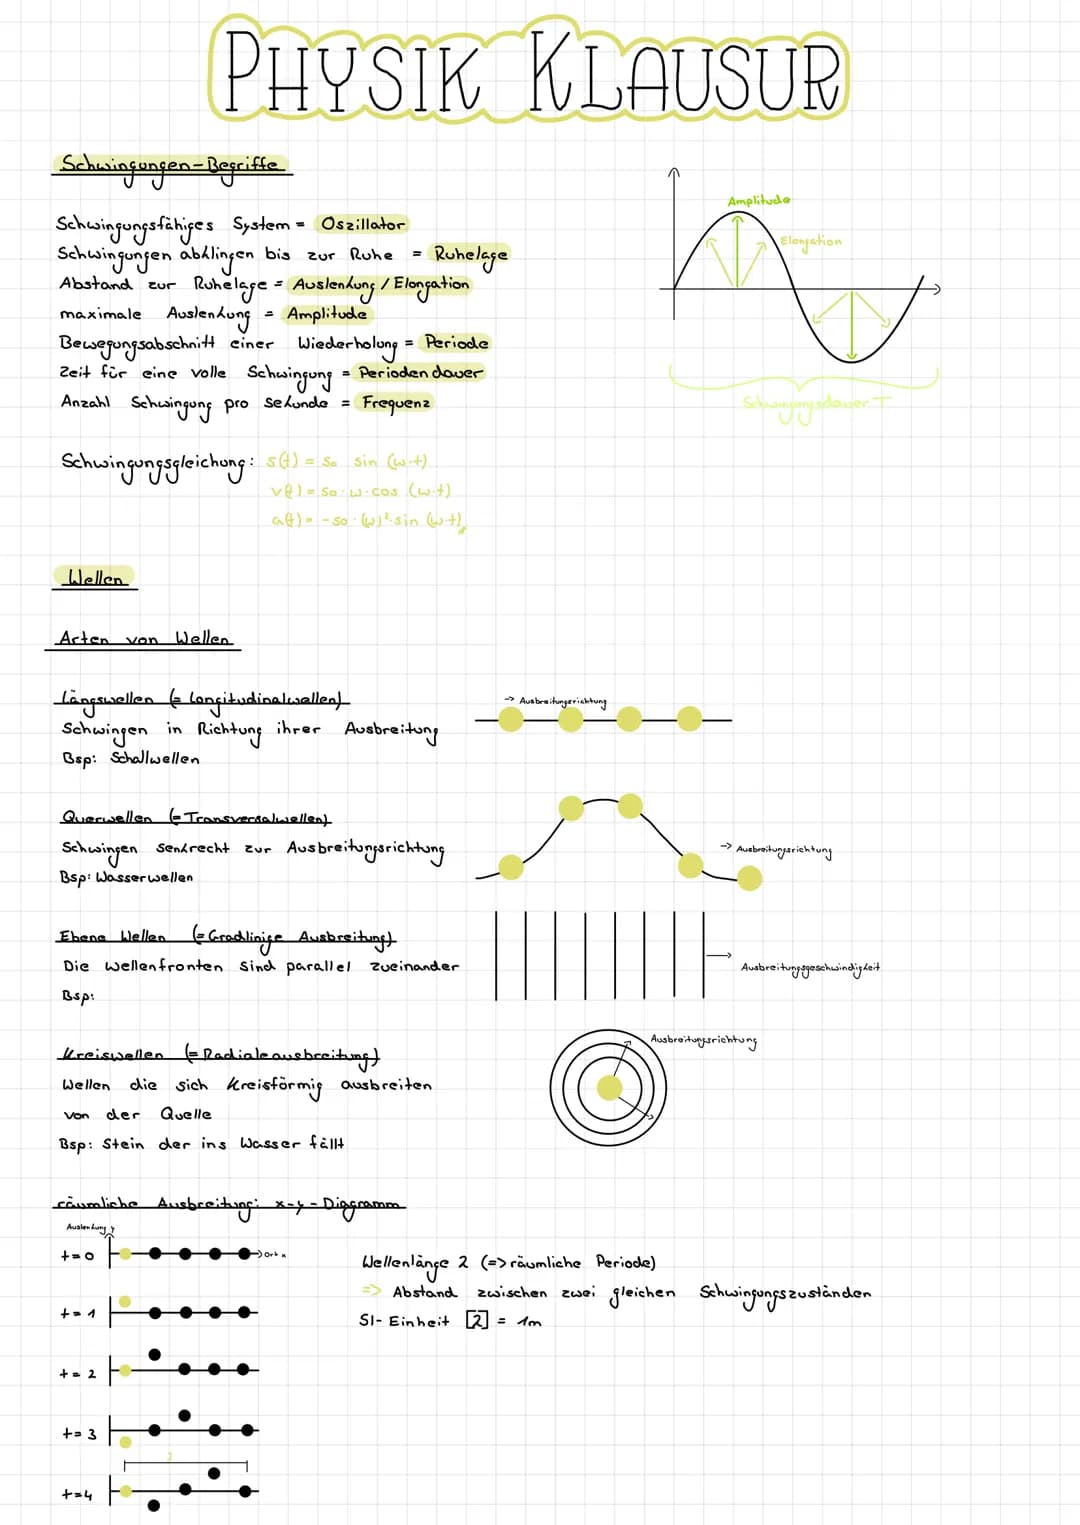 PHYSIK KLAUSUR
Schwingungen-Begriffe
Schwingungsfähiges System = Oszillator
Schwingungen abklingen bis zur Ruhe = Ruhelage
Abstand zur Ruhelage = Auslenkung / Elongation
maximale Auslenkung = Amplitude
Bewegungsabschnitt einer Wiederholung = Periode
Zeit für eine volle Schwingung = Periodendauer
Anzahl Schwingung pro Sekunde = Frequenz
Amplitude
Elongation
Schwingungsdauer T
Schwingungsgleichung: s(t) = s₀ sin (ω·t)
v(t) = s₀·ω·cos (ω·t)
a(t) = -s₀·(ω)²·sin (ω·t)
Wellen
Arten von Wellen
Längswellen (= Longitudinalwellen)
Schwingen in Richtung ihrer Ausbreitung
Bsp: Schallwellen
-> Ausbreitungsrichtung
Querwellen (= Transversalwellen)
Schwingen senkrecht zur Ausbreitungsrichtung
Bsp: Wasserwellen
-> Ausbreitungsrichtung
Ebene Wellen (= Gradlinige Ausbreitung)
Die Wellenfronten sind parallel zueinander
Bsp:
Ausbreitungsgeschwindigkeit
Kreiswellen (= Radiale ausbreitung)
Wellen die sich kreisförmig ausbreiten
von der Quelle
Bsp: Stein der ins Wasser fällt
Ausbreitungsrichtung
räumliche Ausbreitung: x-y-Diagramm
Auslenkung y
t=0
Ort x
t=1
t=2
t=3
t=4
λ
Wellenlänge λ (=> räumliche Periode)
=> Abstand zwischen zwei gleichen Schwingungszuständen
SI-Einheit [λ] = 1m